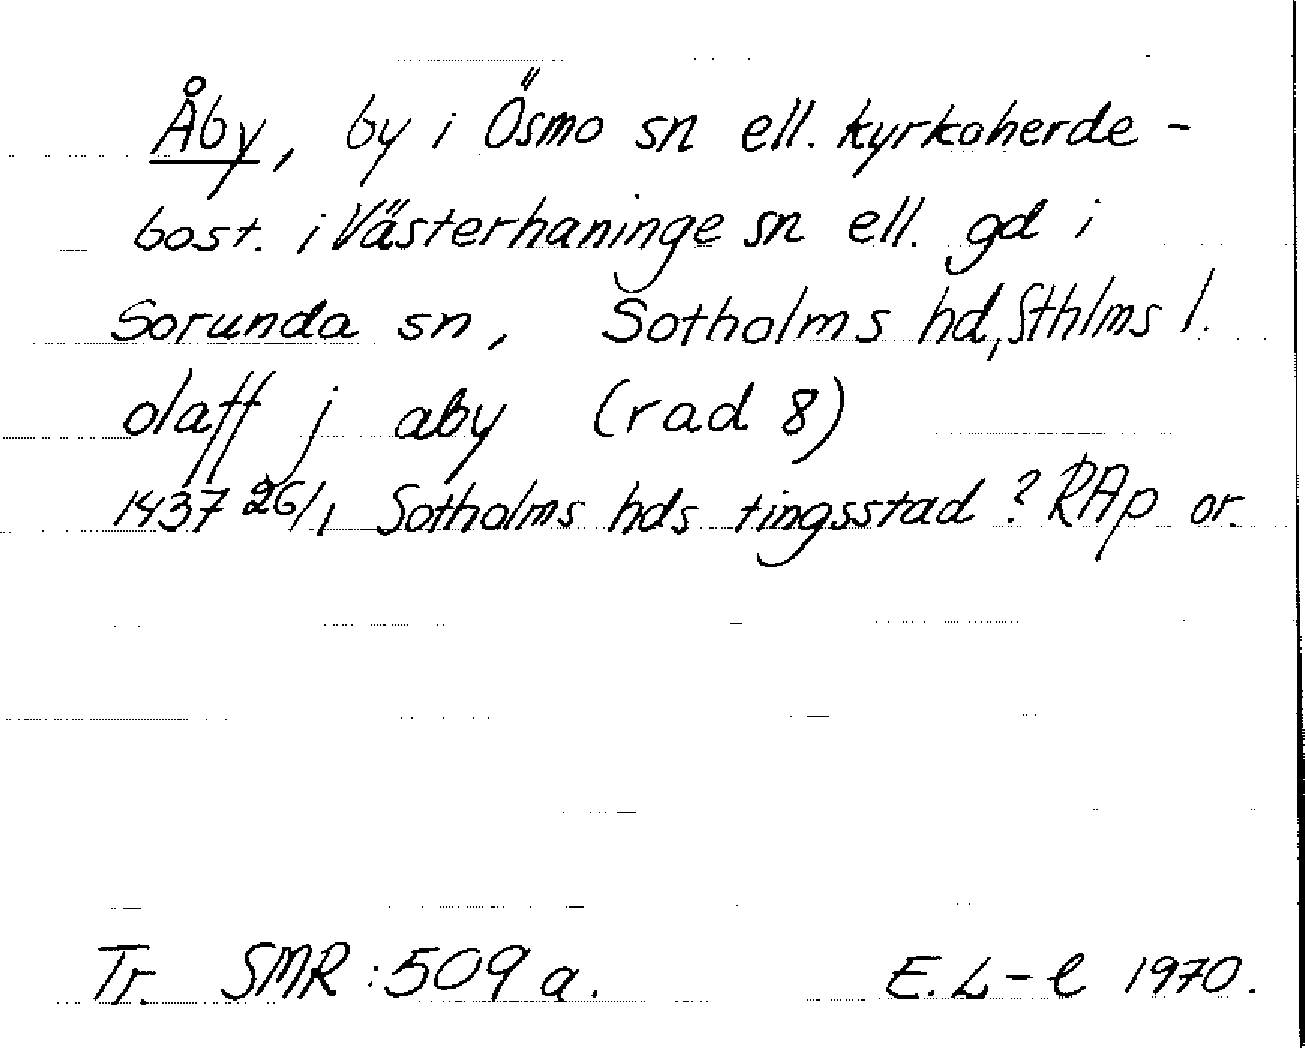 Åby, by i Ösmo sn ell. kyrkoherde-
bost. i Västerhaninge sn ell. gd i
Sorunda sn, Sotholms hd, Sthlms l.
olaff j aby (rad 8)
1437 26/1 Sotholms hds tingsstad? RAp or.
Tr. SMR: 509 a. E. L-l 1970.